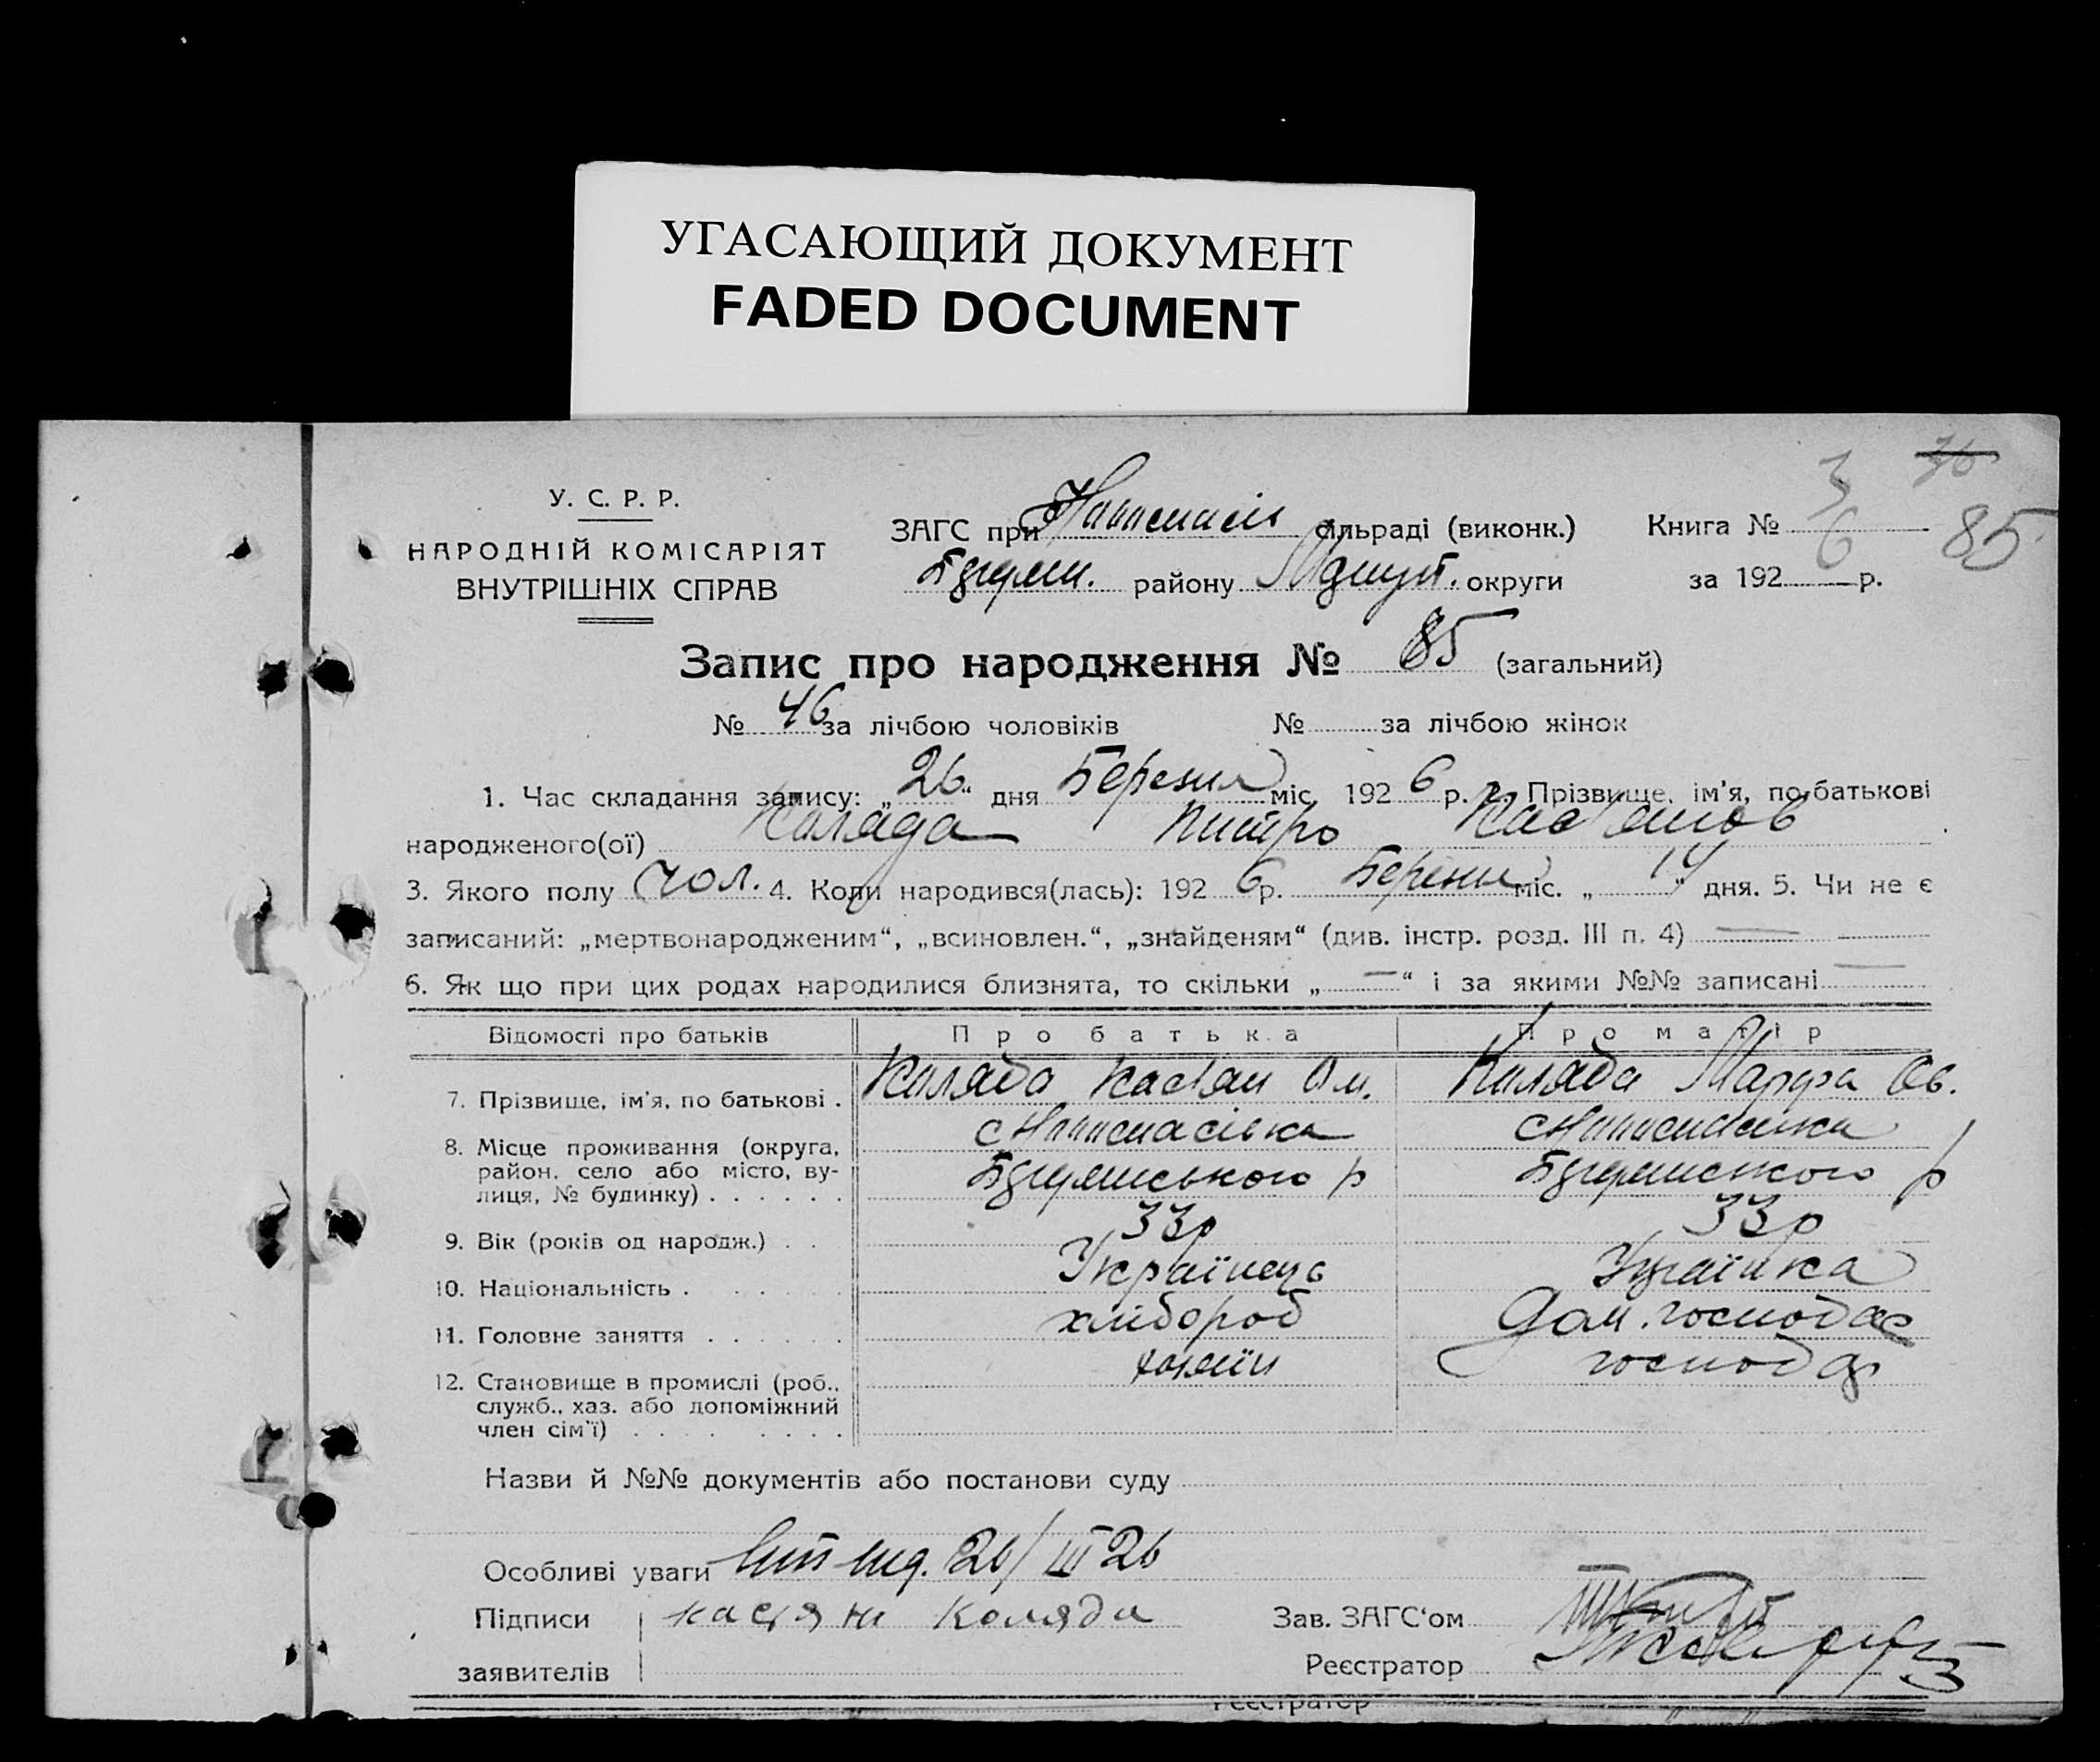 УГАСАЮЩИЙ ДОКУМЕНТ
FADED DOCUMENT
36
У. С. Р. Р.
НАРОДНІЙ КОМІСАРІЯТ
ВНУТРІШНІХ СПРАВ
ЗАГС при сільраді (виконк.)
району округи
Книга № 3
85
за 192 6 р.
Запис про народження № 85 (загальний)
№ 46 за лічбою чоловіків № за лічбою жінок
1. Час складання запису: „ 26 “ дня Березня міс. 192 6 р. 2. Прізвище, ім'я, по батькові
народженого(ої) Коляда Питро Кас'янов
3. Якого полу чол. 4. Коли народився(лась): 192 6 р. Березня міс. „ 14 “ дня. 5. Чи не є
записаний: „мертвонародженим“, „всиновлен.“, „знайденям“ (див. інстр. розд. III п. 4) —
6. Як що при цих родах народилися близнята, то скільки „ — “ і за якими №№ записані —
Відомості про батьків Про батька Про матір
7. Прізвище, ім'я, по батькові . Коляда Кас'ян Ом. Коляда Марфа Ов.
8. Місце проживання (округа,
район, село або місто, ву-
лиця, № будинку) . . . . . .
9. Вік (років од народж.) . . 33р 33р
10. Національність . Українець Українка
11. Головне заняття . хлібороб Дом. господар
12. Становище в промислі (роб.,
служб., хаз. або допоміжний
член сім'ї) . . . . хазяїн господар
Назви й №№ документів або постанови суду
Особливі уваги 26/III 26
Підписи касян Коляда Зав. ЗАГС'ом
заявителів Реєстратор
Реєстратор